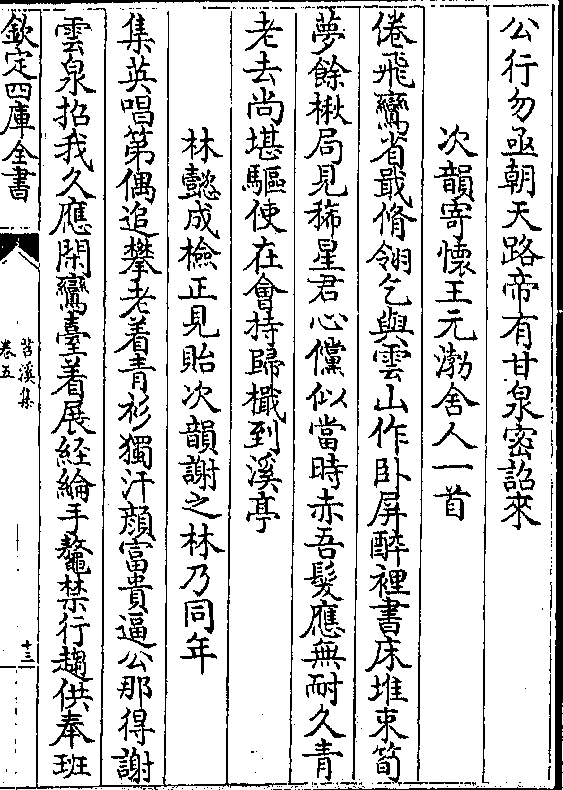 公行勿亟朝天路帝有甘泉密詔來
次韻寄懷王元渤舍人一首
倦飛鸞省戢脩翎乞與雲山作卧屏醉裡書床堆束筍
夢餘楸局見稀星君心儻似當時赤吾髮應無耐久青
老去尚堪驅使在會持歸檝到溪亭
林懿成檢正見貽次韻謝之林乃同年
集英唱第偶追攀老着青衫獨汗顔富貴逼公那得謝
雲泉招我久應閑鸞臺着展経綸手鼇禁行趨供奉班
欽定四庫全書
苕溪集
卷五
十三